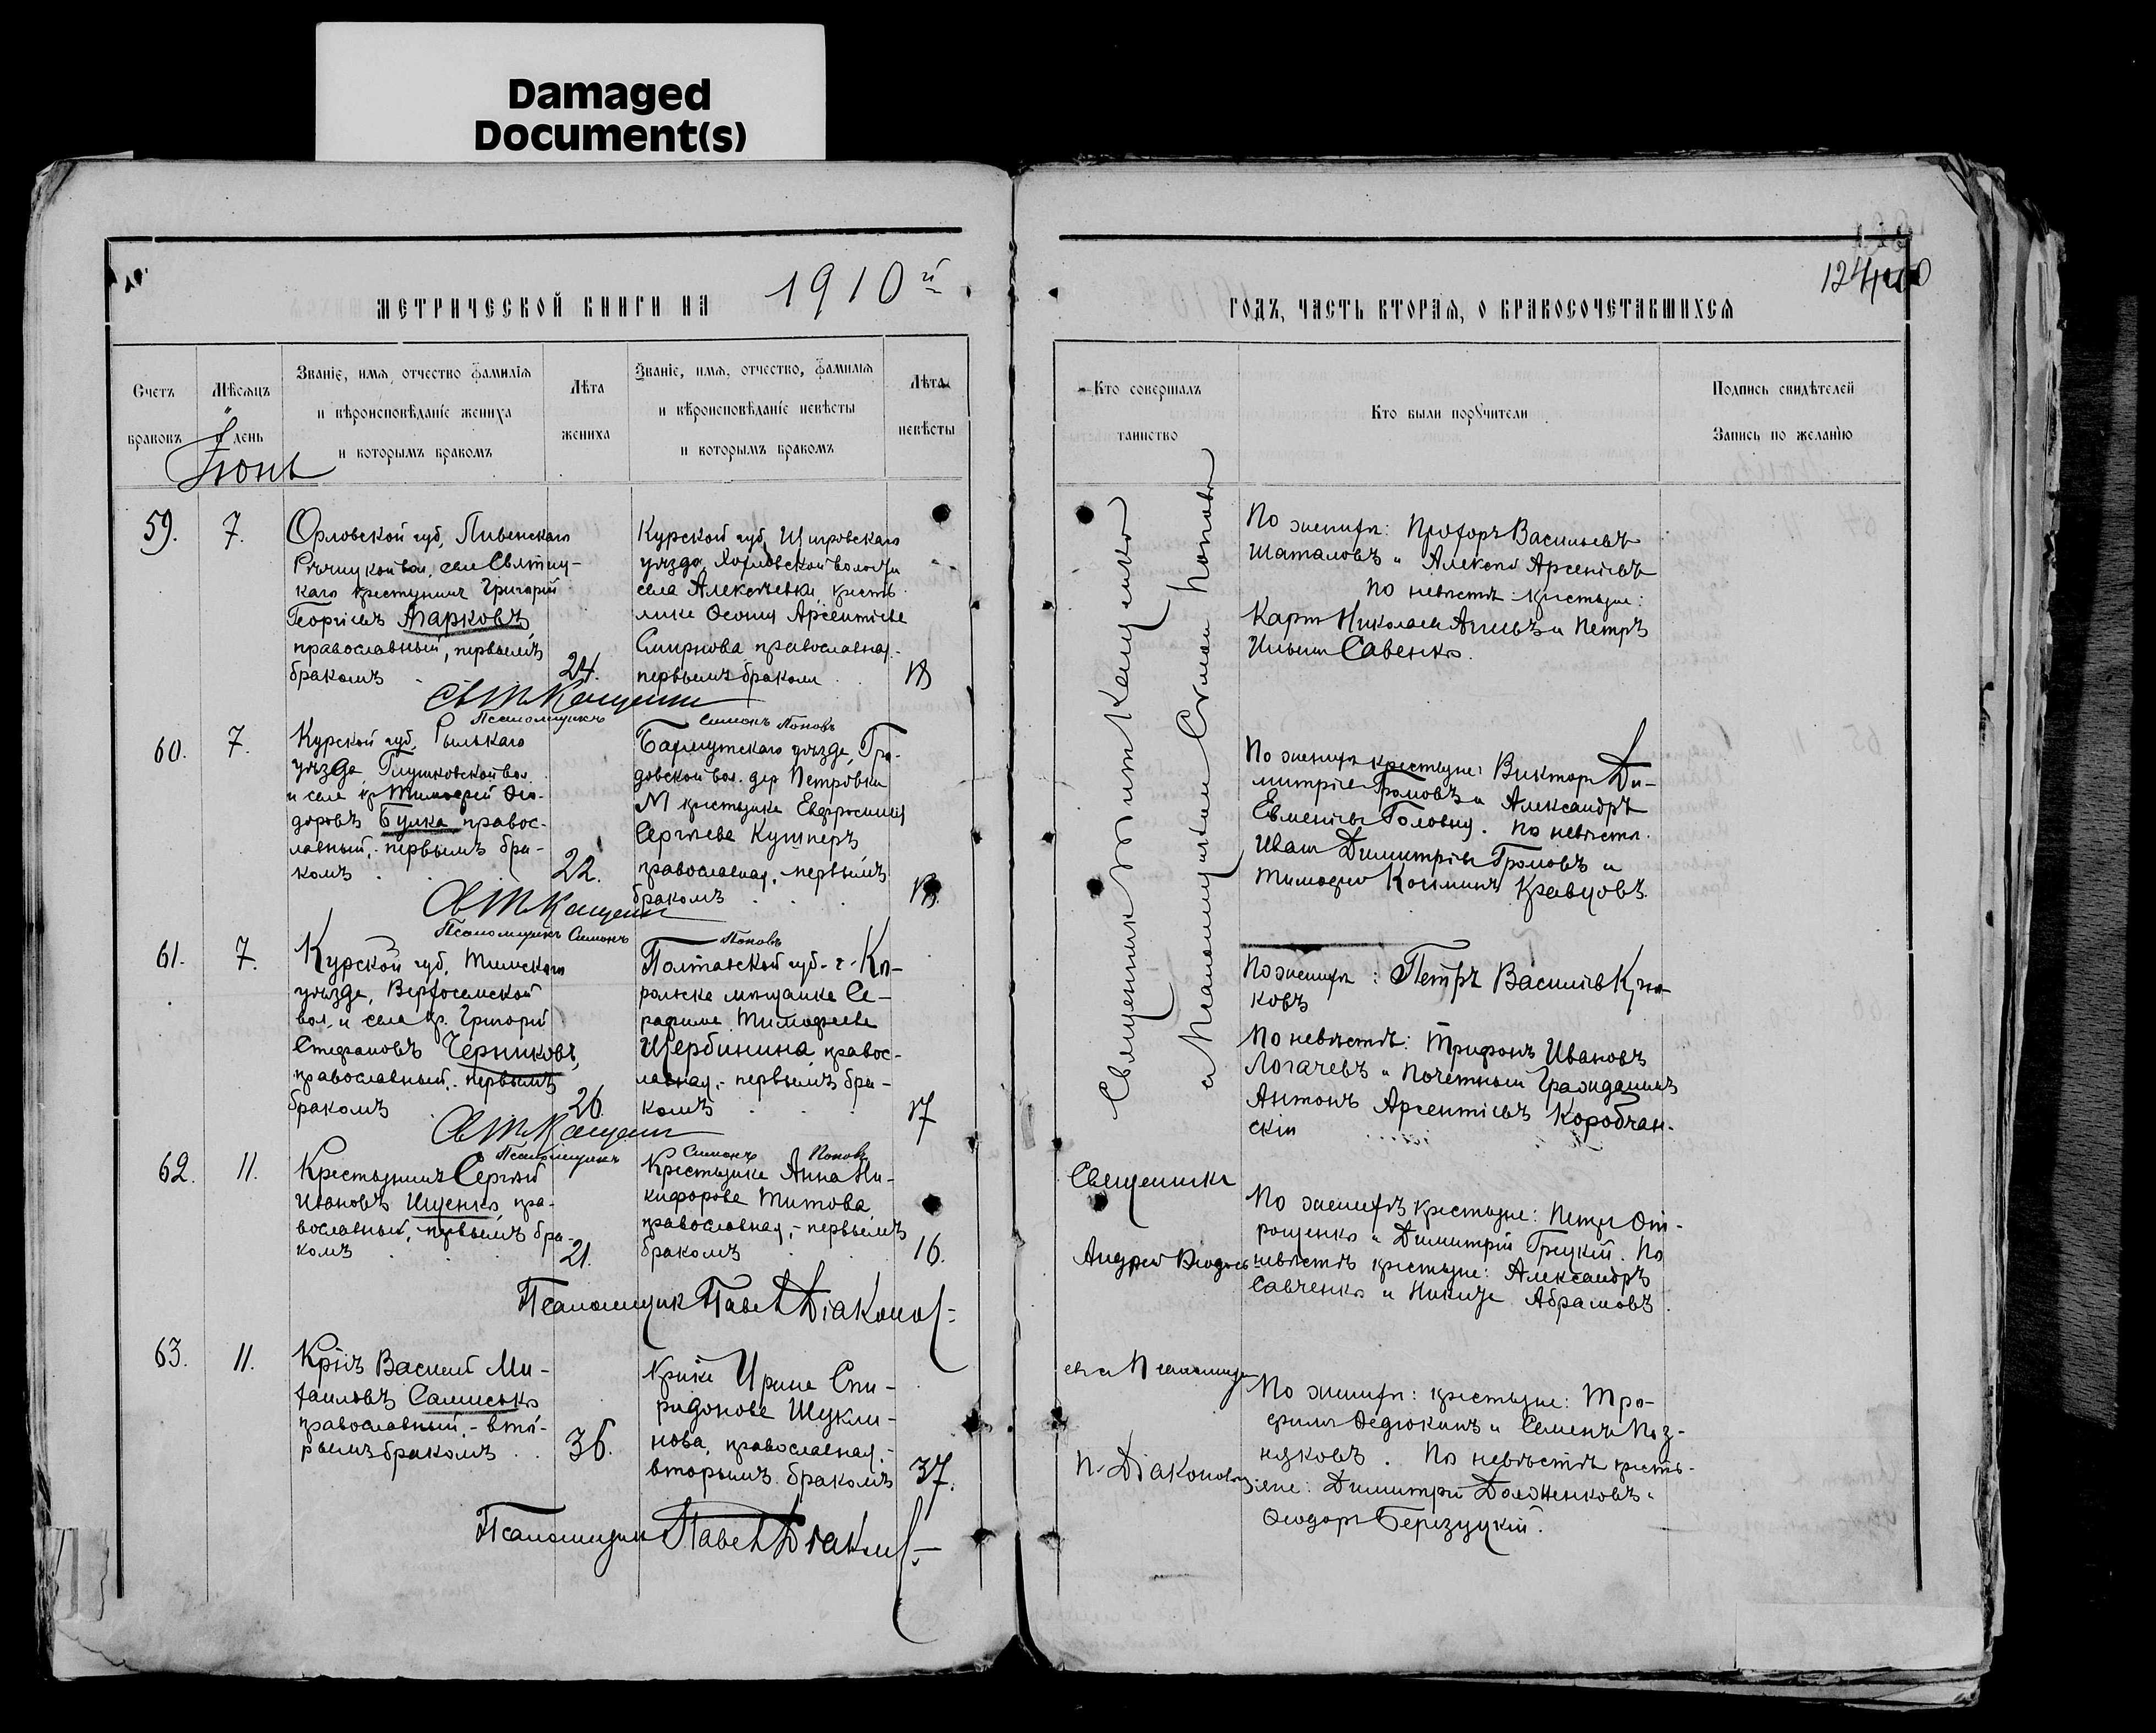 Damaged
Document(s)
МЕТРИЧЕСКОЙ КНИГИ НА 1910й
ГОДЪ, ЧАСТЬ ВТОРАЯ, О БРАКОСОЧЕТАВШИХСЯ
124
Счетъ
браковъ
Мѣсяцъ
и день
Званіе, имя, отчество фамилія
и вѣроисповѣданіе жениха
и которымъ бракомъ
Лѣта
жениха
Званіе, имя, отчество, фамилія
и вѣроисповѣданіе невѣсты
и которымъ бракомъ
Лѣта
невѣсты
Кто совершалъ
таинство
Кто были поручители
Подпись свидѣтелей
Запись по желанію
Іюнь
59.
7.
Орловской губ, Ливенскаго
Рѣчицкой вол, села
крестьянинъ Григорій
Георгіевъ Марковъ,
православный, первымъ
бракомъ
24.
Курской губ, Щигровскаго
уѣзда, Хохловской волости
села Алексѣевки, кресть
Арсентіева
Смирнова православная.-
первымъ бракомъ
18
По женихѣ: Прохоръ Васильевъ
Шаталовъ и Алексѣй Арсеніевъ
По невѣстѣ крестьяне:
Карпъ Николаевъ и Петръ
Ильинъ Савенко.
Священникъ
и Псаломщикъ Симонъ Поповъ
Псаломщикъ Симонъ Поповъ
60.
7.
Курской губ, Рыльскаго
уѣзда, Глушковской вол.
и села кр Тимофей Өео-
доровъ Булка правос-
лавный, первымъ бра-
комъ
22.
Бахмутскаго уѣзда,
довской вол. дер Петровки
крестьянка Евфросинія
Сергѣева Кушнеръ
православная, первымъ
бракомъ
18.
По женихѣ крестьяне: Викторъ Ди-
митріевъ Громовъ и Александръ
Евменіевъ Головня. По невѣстѣ
Иванъ Димитріевъ Громовъ и
Тимофей Кравцовъ.
Псаломщикъ Симонъ Поповъ
61.
7.
Курской губ, Тимскаго
уѣзда, Верхосемской
вол. и села кр. Григорій
Стефановъ Черниковъ,
православный, первымъ
бракомъ
26.
Полтавской губ. г. Ко-
ропска мѣщанка Се-
рафима Тимофеева
Щербинина правос-
лавная, первымъ бра-
комъ
17
По женихѣ: Петръ Васильевъ Крю-
ковъ
По невѣстѣ: Трифонъ Ивановъ
Логачевъ и Почетный Гражданинъ
Антонъ Арсентіевъ Коробчан-
скій
Псаломщикъ Симонъ Поповъ
62.
11.
Крестьянинъ Сергѣй
Ивановъ Ищенко, пра-
вославный, первымъ бра-
комъ
21.
Крестьянка Анна Ни-
кифорова Титова,
православная, первымъ
бракомъ
16.
Священникъ
Андрей
По женихѣ крестьяне: Петръ От-
рощенко и Димитрій Грецкій. По
невѣстѣ крестьяне: Александръ
Савченко и Никита Абрамовъ.
Псаломщикъ Павелъ Діаконовъ
63.
11.
Кр-нъ Василій Ми-
хаиловъ Самисько
православный, вто-
рымъ бракомъ
36.
Кр-нка Ирина Спи-
ридонова Шукли-
нова, православная,
вторымъ бракомъ
37.
и Псаломщикъ
П. Діаконовъ
По женихѣ: крестьяне: Тро-
фимъ Федюкинъ и Семенъ Поз-
няковъ. По невѣстѣ кресть-
яне: Димитрій Долженковъ и
Өеодоръ Березуцкій.
Псаломщикъ Павелъ Діаконовъ